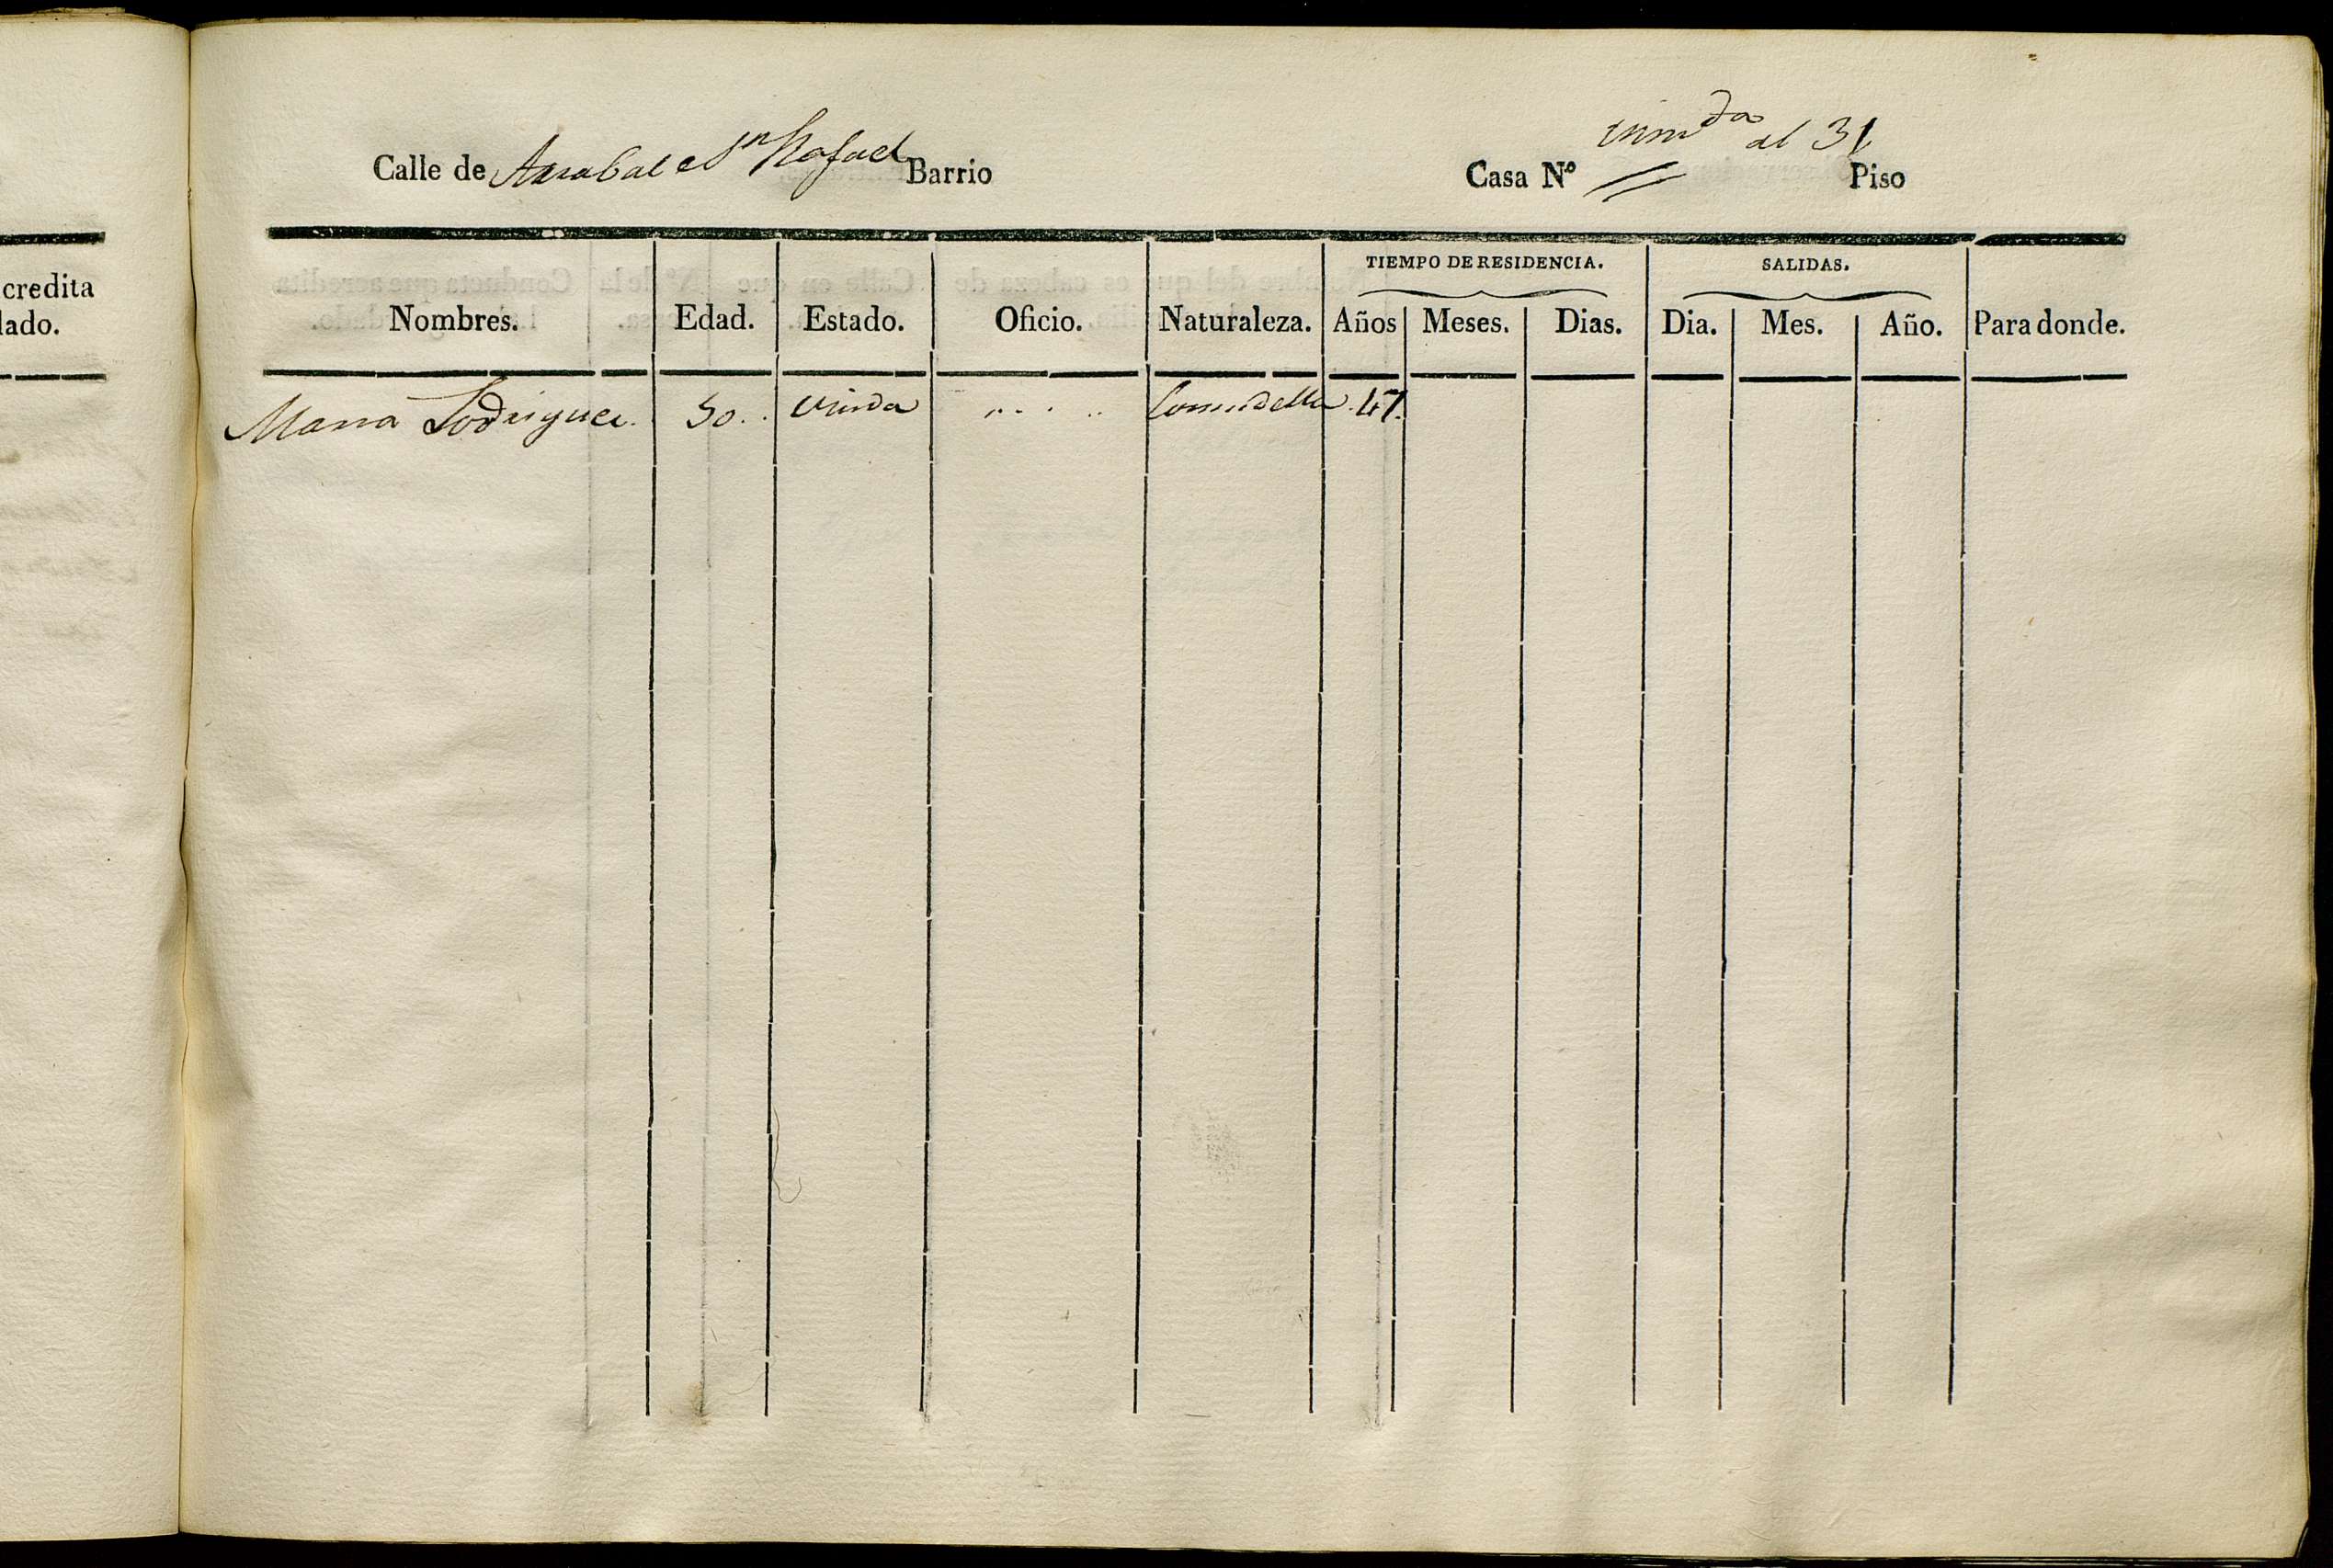 credita
lado.
Calle de Arrabal e Sn Rafael Barrio
Casa Nº inmda al 31 Piso
TIEMPO DE RESIDENCIA. SALIDAS.
Nombres. Edad. Estado. Oficio. Naturaleza. Años Meses. Dias. Dia. Mes. Año. Para donde.
Maria Rodriguez. 50.. viuda ..... Cornudella. 47.